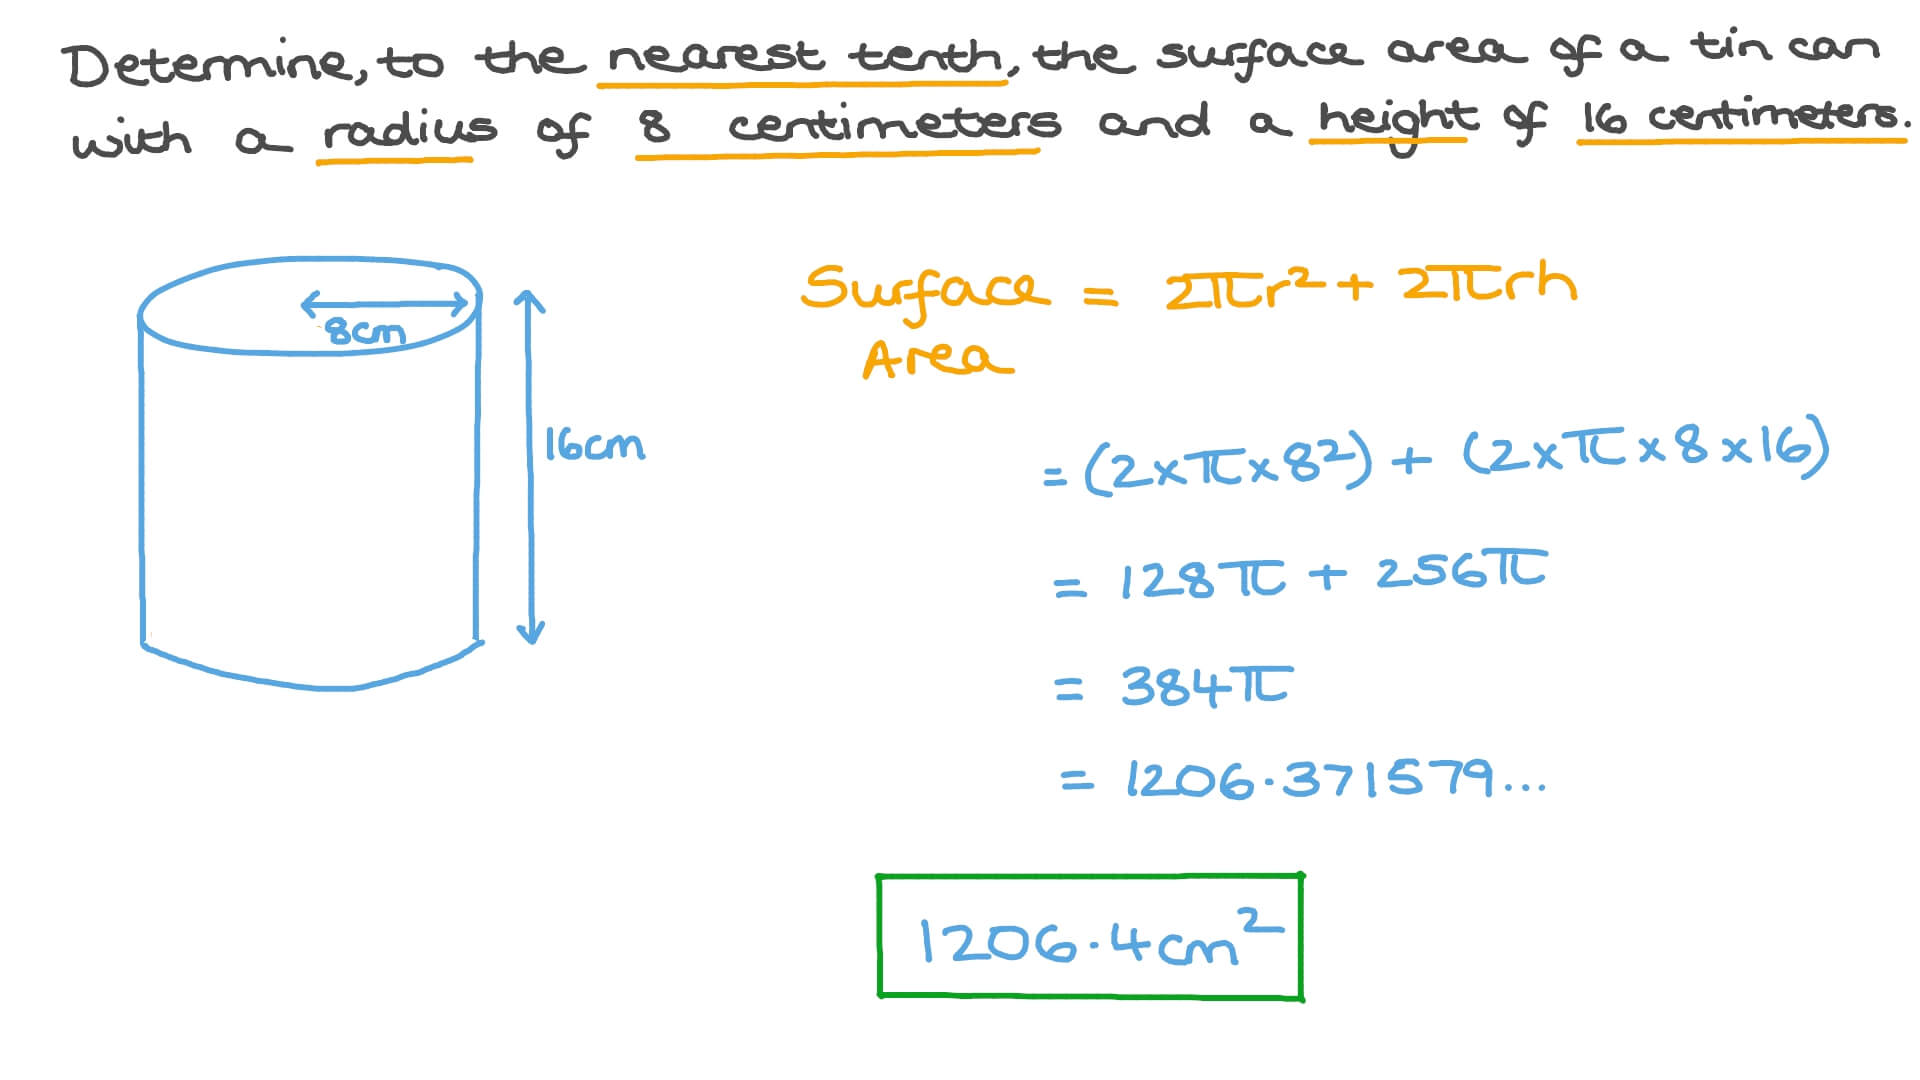 Determine, to the nearest tenth, the surface area of a tin can
with a radius of 8 centimeters and a height of 16 centimeters.
8cm
16cm
Surface = 2πr² + 2πrh
Area
= (2xπx8²) + (2xπx8x16)
= 128π + 256π
= 384π
= 1206.371579...
1206.4cm²